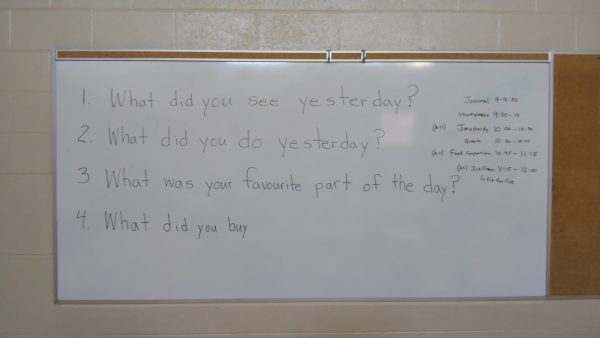 1. What did you see yesterday?
2. What did you do yesterday?
3. What was your favourite part of the day?
4. What did you buy
Journal 9-9:30
Worksheets 9:30-10
Jeopardy 10:00-10:30
10:30-10:45
Food Comparison 10:45-11:15
Ice Cream 11:15-12:00